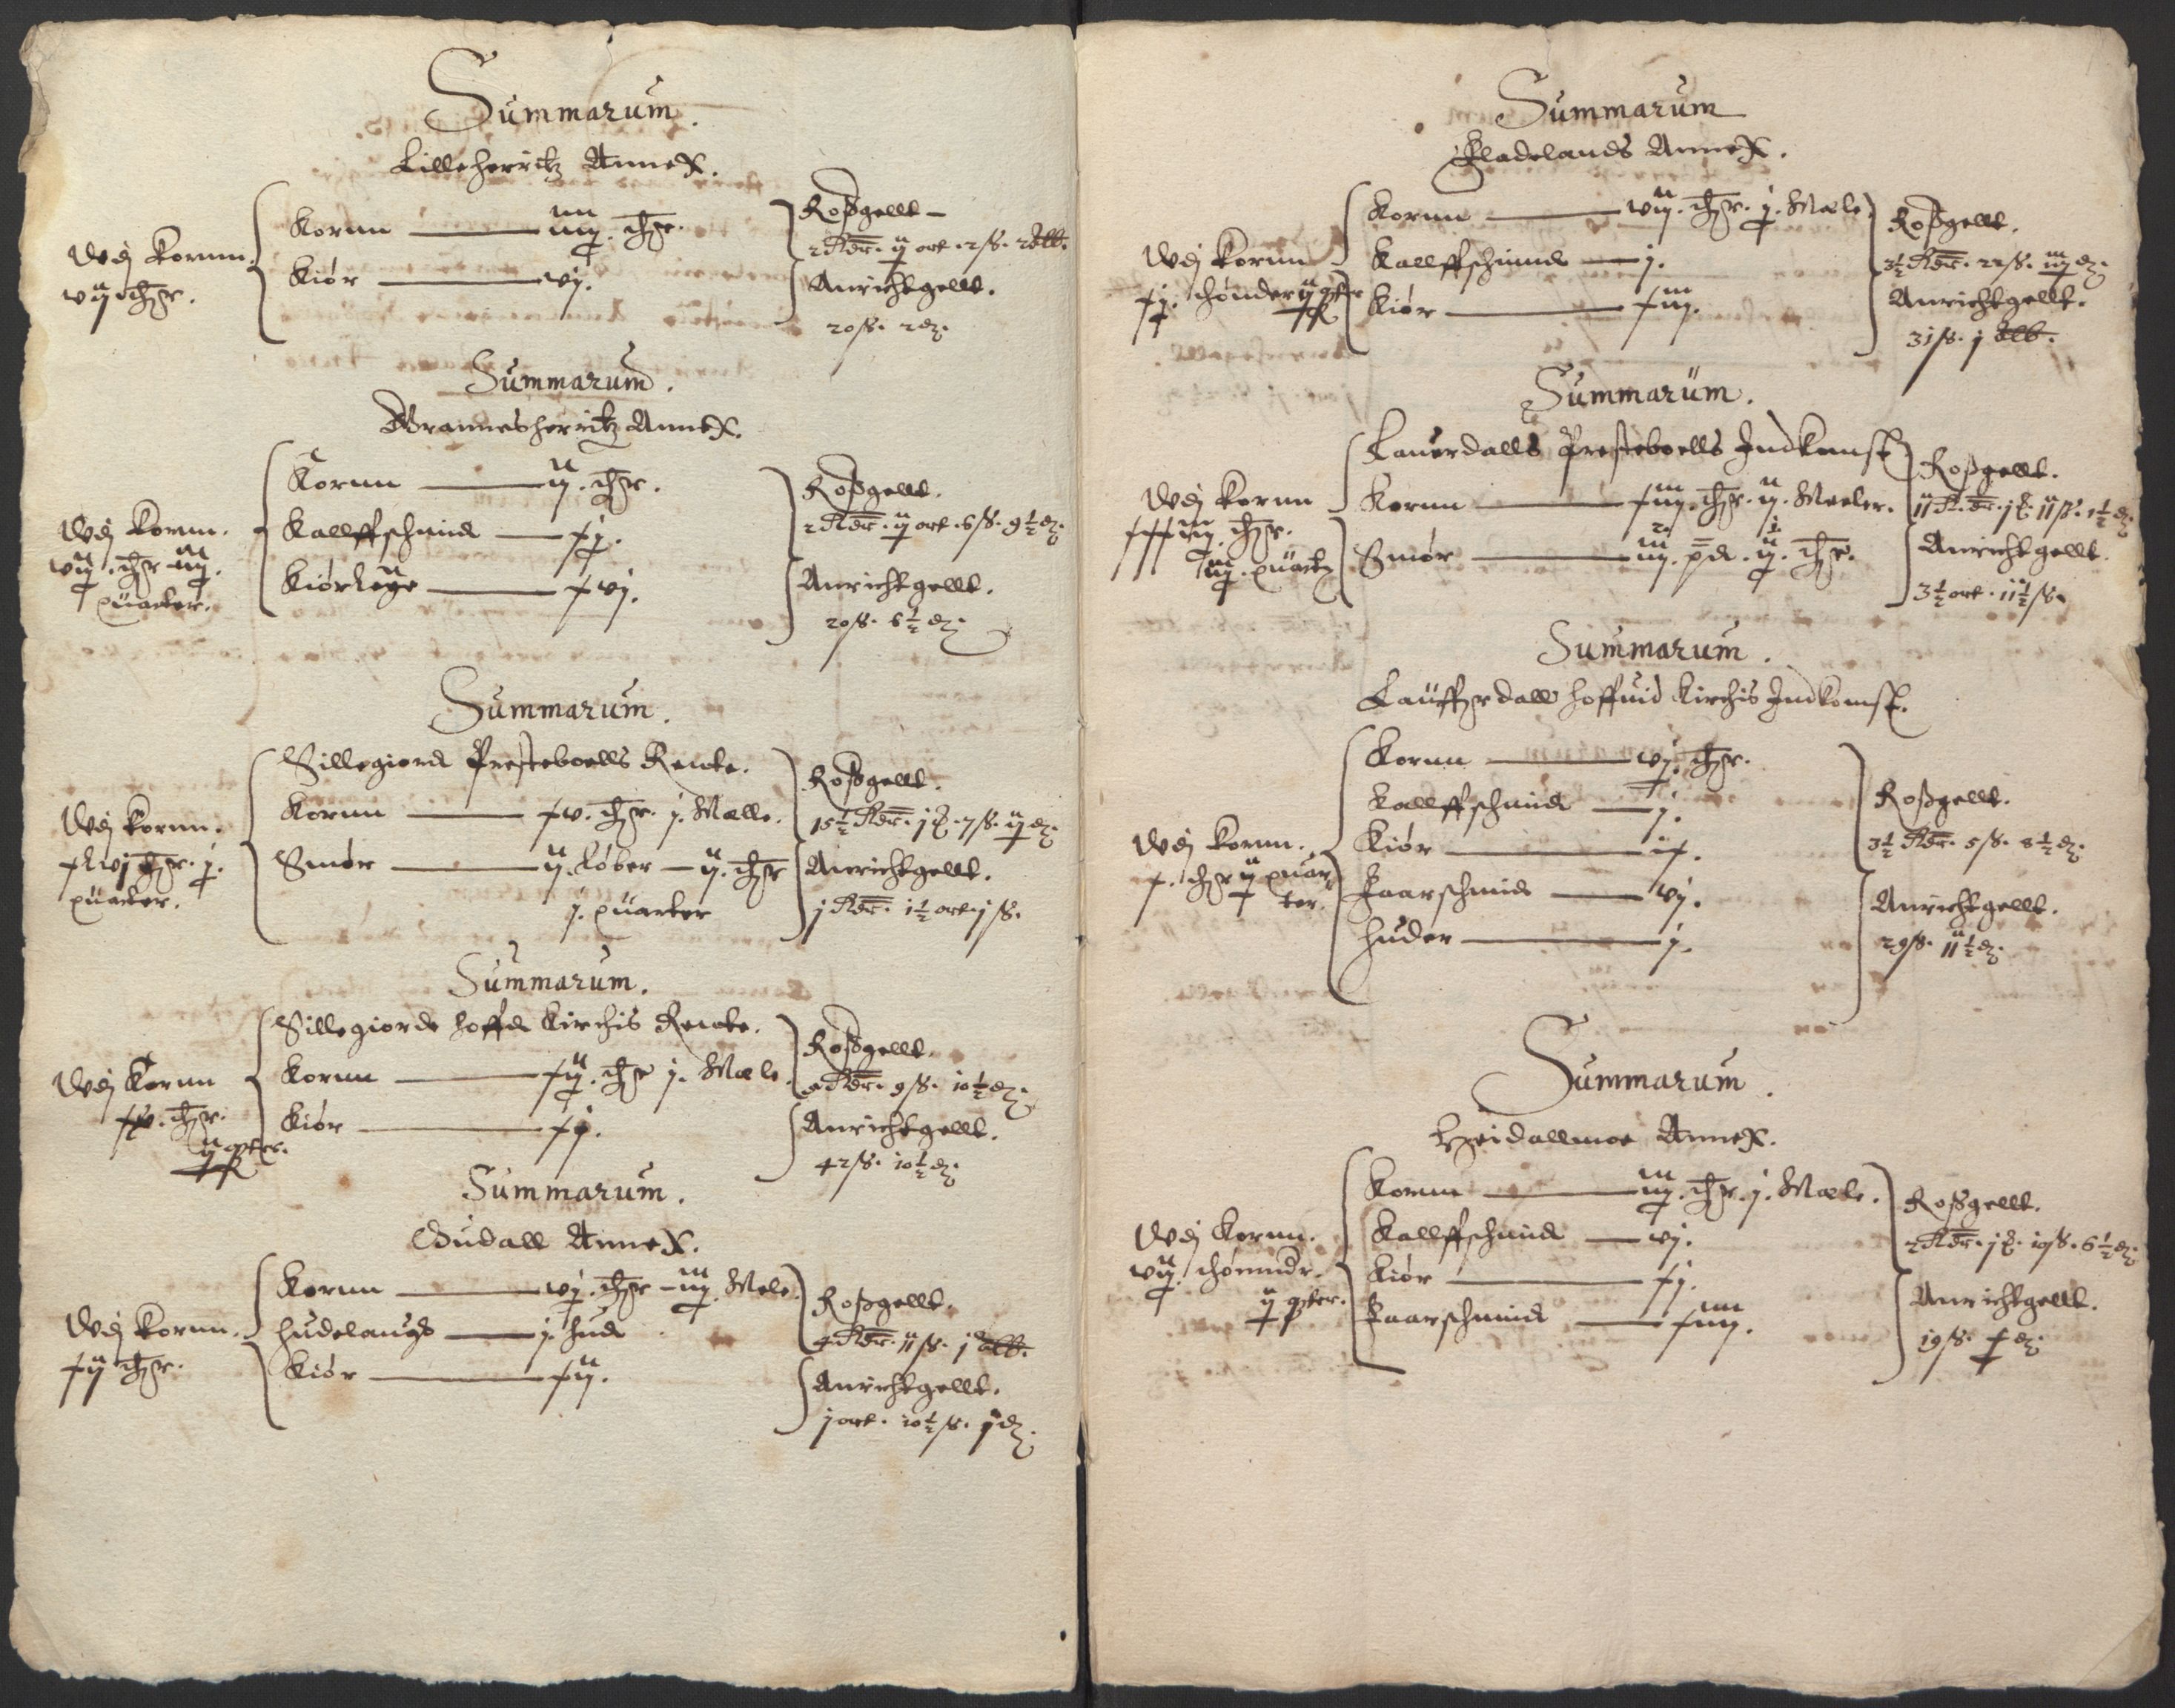 Summarum.
Lilleherritz Annex.
Wdj Kornn.
vij. thr.
Kornn — iiij. thr.
Kiør — vj.
Roßgellt —
2 Rdr. ij ort. 2 ß. 2 alb.
Anrichtgellt.
20 ß. 2 ₰.
Summarum.
Brannesherritz Annex.
Wdj Kornn.
vij. thr iiij.
quarter.
Kornn — ij. thr.
Kallffschind — xj.
Kiørlege — xvj.
Roßgellt.
2 Rdr. ij ort. 6 ß. 9½ ₰.
Anrichtgellt.
20 ß. 6½ ₰.
Summarum.
Sillegiord Presteboells Rente.
Wdj Kornn.
thr. j.
quarter.
Kornn — xv. thr. j. Mælle.
Smør — ij. Løber — ij. thr
j. quarter
Roßgellt.
15½ Rdr. j 7 ß. ij ₰.
Anrichtgellt.
j Rdr. 1½ ort. j ß.
Summarum.
Sillegiords hoffd Kirchis Rente.
Wdj Kornn
thr.
ij qter.
Kornn — xij. thr j. Mæle.
Kiør — xj.
Roßgellt.
Rdr. 9 ß. 10½ ₰.
Anrichtgellt.
42 ß. 10½ ₰.
Summarum.
Annex.
Wdj Kornn.
xij thr.
Kornn — vj. thr — iij. Mele.
hudelaugs — j. hud
Kiør — xij.
Roßgellt.
4 Rdr. ij ß. j alb.
Anrichtgellt.
j ort. 10½ ß. j ₰.
Summarum
Fladelands Annex.
Wdj Kornn
xj. thønder ij qter
Kornn — vij. thr. j. Mæle.
Kallffschind — j.
Kiør — xiij.
Roßgellt.
3½ Rdr. 22 ß. iij ₰.
Anrichtgellt.
31 ß. j alb.
Summarum.
Laurdalls Presteboells Indkomst
Wdj Kornn
xxxiij. thr.
iij. quart
Kornn — xiij. thr. ij. Meeler.
Smør — iij. pd. ij. thr.
Roßgellt.
ij Rdr. j ij ß. 1½ ₰.
Anrichtgellt.
3½ ort. 11½ ß.
Summarum.
Lauffrdall hoffuid Kirchis Indkomst.
Wdj Kornn.
x. thr ij quar
ter.
Kornn — vj. thr.
Kallffschind — j.
Kiør — ix.
Faarschind — vj.
huder — j.
Roßgellt.
3½ Rdr. 5 ß. 8½ ₰.
Anrichtgellt.
29 ß. 11½ ₰.
Summarum.
Annex.
Wdj Kornn.
vij. thønndr.
ij qter.
Kornn — iij. thr. j. Mæle.
Kallffschind — vj.
Kiør — xj.
Faarschind — xiiij.
Roßgellt.
2 Rdr. j 10 ß. 6½ ₰.
Anrichtgellt.
19 ß. ₰.